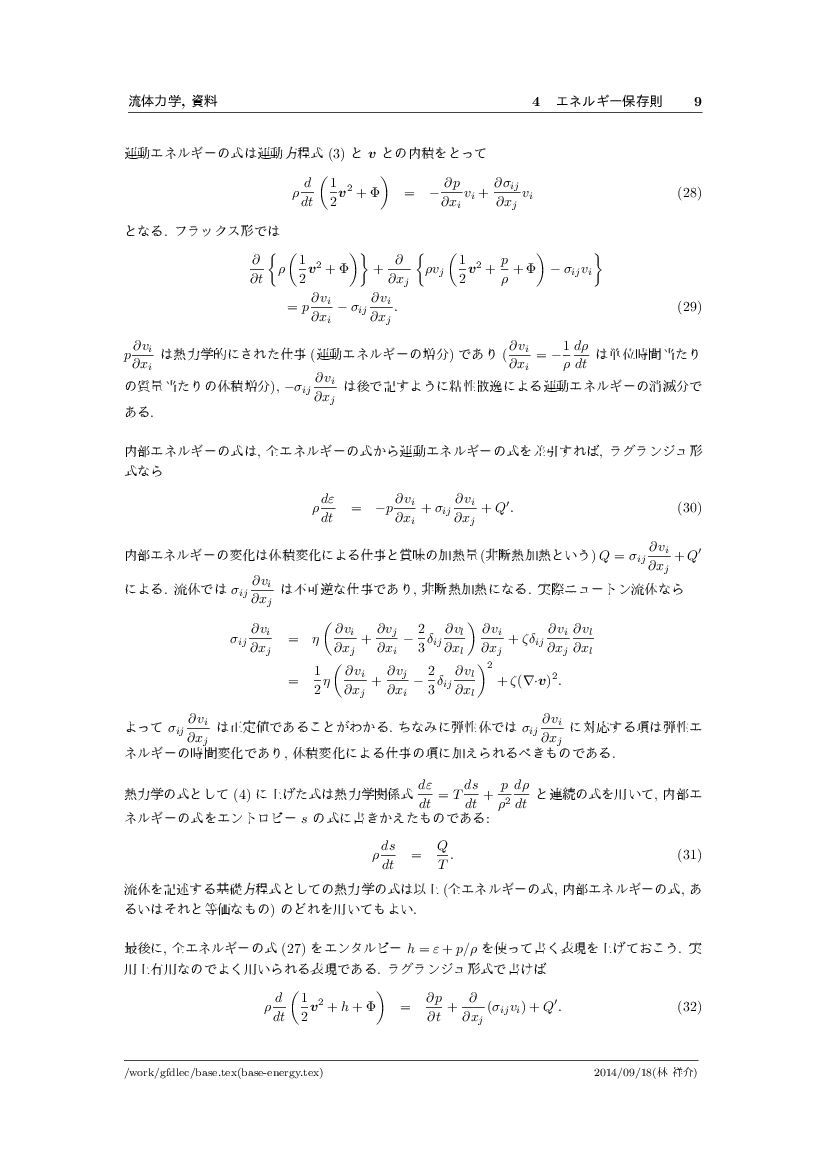 流体力学, 資料 4 エネルギー保存則 9
運動エネルギーの式は運動方程式 (3) と v との内積をとって
ρ d/dt (1/2 v² + Φ) = −∂p/∂xᵢ vᵢ + ∂σᵢⱼ/∂xⱼ vᵢ (28)
となる. フラックス形では
∂/∂t {ρ (1/2 v² + Φ)} + ∂/∂xⱼ {ρvⱼ (1/2 v² + p/ρ + Φ) − σᵢⱼvᵢ}
= p ∂vᵢ/∂xᵢ − σᵢⱼ ∂vᵢ/∂xⱼ. (29)
p ∂vᵢ/∂xᵢ は熱力学的にされた仕事 (運動エネルギーの増分) であり (∂vᵢ/∂xᵢ = −1/ρ dρ/dt は単位時間当たり
の質量当たりの体積増分), −σᵢⱼ ∂vᵢ/∂xⱼ は後で記すように粘性散逸による運動エネルギーの消滅分で
ある.
内部エネルギーの式は, 全エネルギーの式から運動エネルギーの式を差引すれば, ラグランジュ形
式なら
ρ dε/dt = −p ∂vᵢ/∂xᵢ + σᵢⱼ ∂vᵢ/∂xⱼ + Q′. (30)
内部エネルギーの変化は体積変化による仕事と賞味の加熱量(非断熱加熱という) Q = σᵢⱼ ∂vᵢ/∂xⱼ + Q′
による. 流体では σᵢⱼ ∂vᵢ/∂xⱼ は不可逆な仕事であり, 非断熱加熱になる. 実際ニュートン流体なら
σᵢⱼ ∂vᵢ/∂xⱼ = η (∂vᵢ/∂xⱼ + ∂vⱼ/∂xᵢ − 2/3 δᵢⱼ ∂vₗ/∂xₗ) ∂vᵢ/∂xⱼ + ζδᵢⱼ ∂vᵢ/∂xⱼ ∂vₗ/∂xₗ
= 1/2 η (∂vᵢ/∂xⱼ + ∂vⱼ/∂xᵢ − 2/3 δᵢⱼ ∂vₗ/∂xₗ)² + ζ(∇·v)².
よって σᵢⱼ ∂vᵢ/∂xⱼ は正定値であることがわかる. ちなみに弾性体では σᵢⱼ ∂vᵢ/∂xⱼ に対応する項は弾性エ
ネルギーの時間変化であり, 体積変化による仕事の項に加えられるべきものである.
熱力学の式として (4) に上げた式は熱力学関係式 dε/dt = T ds/dt + p/ρ² dρ/dt と連続の式を用いて, 内部エ
ネルギーの式をエントロピー s の式に書きかえたものである:
ρ ds/dt = Q/T. (31)
流体を記述する基礎方程式としての熱力学の式は以上 (全エネルギーの式, 内部エネルギーの式, あ
るいはそれと等価なもの) のどれを用いてもよい.
最後に, 全エネルギーの式 (27) をエンタルピー h = ε + p/ρ を使って書く表現を上げておこう. 実
用上有用なのでよく用いられる表現である. ラグランジュ形式で書けば
ρ d/dt (1/2 v² + h + Φ) = ∂p/∂t + ∂/∂xⱼ (σᵢⱼvᵢ) + Q′. (32)
/work/gfdlec/base.tex(base-energy.tex) 2014/09/18(林 祥介)